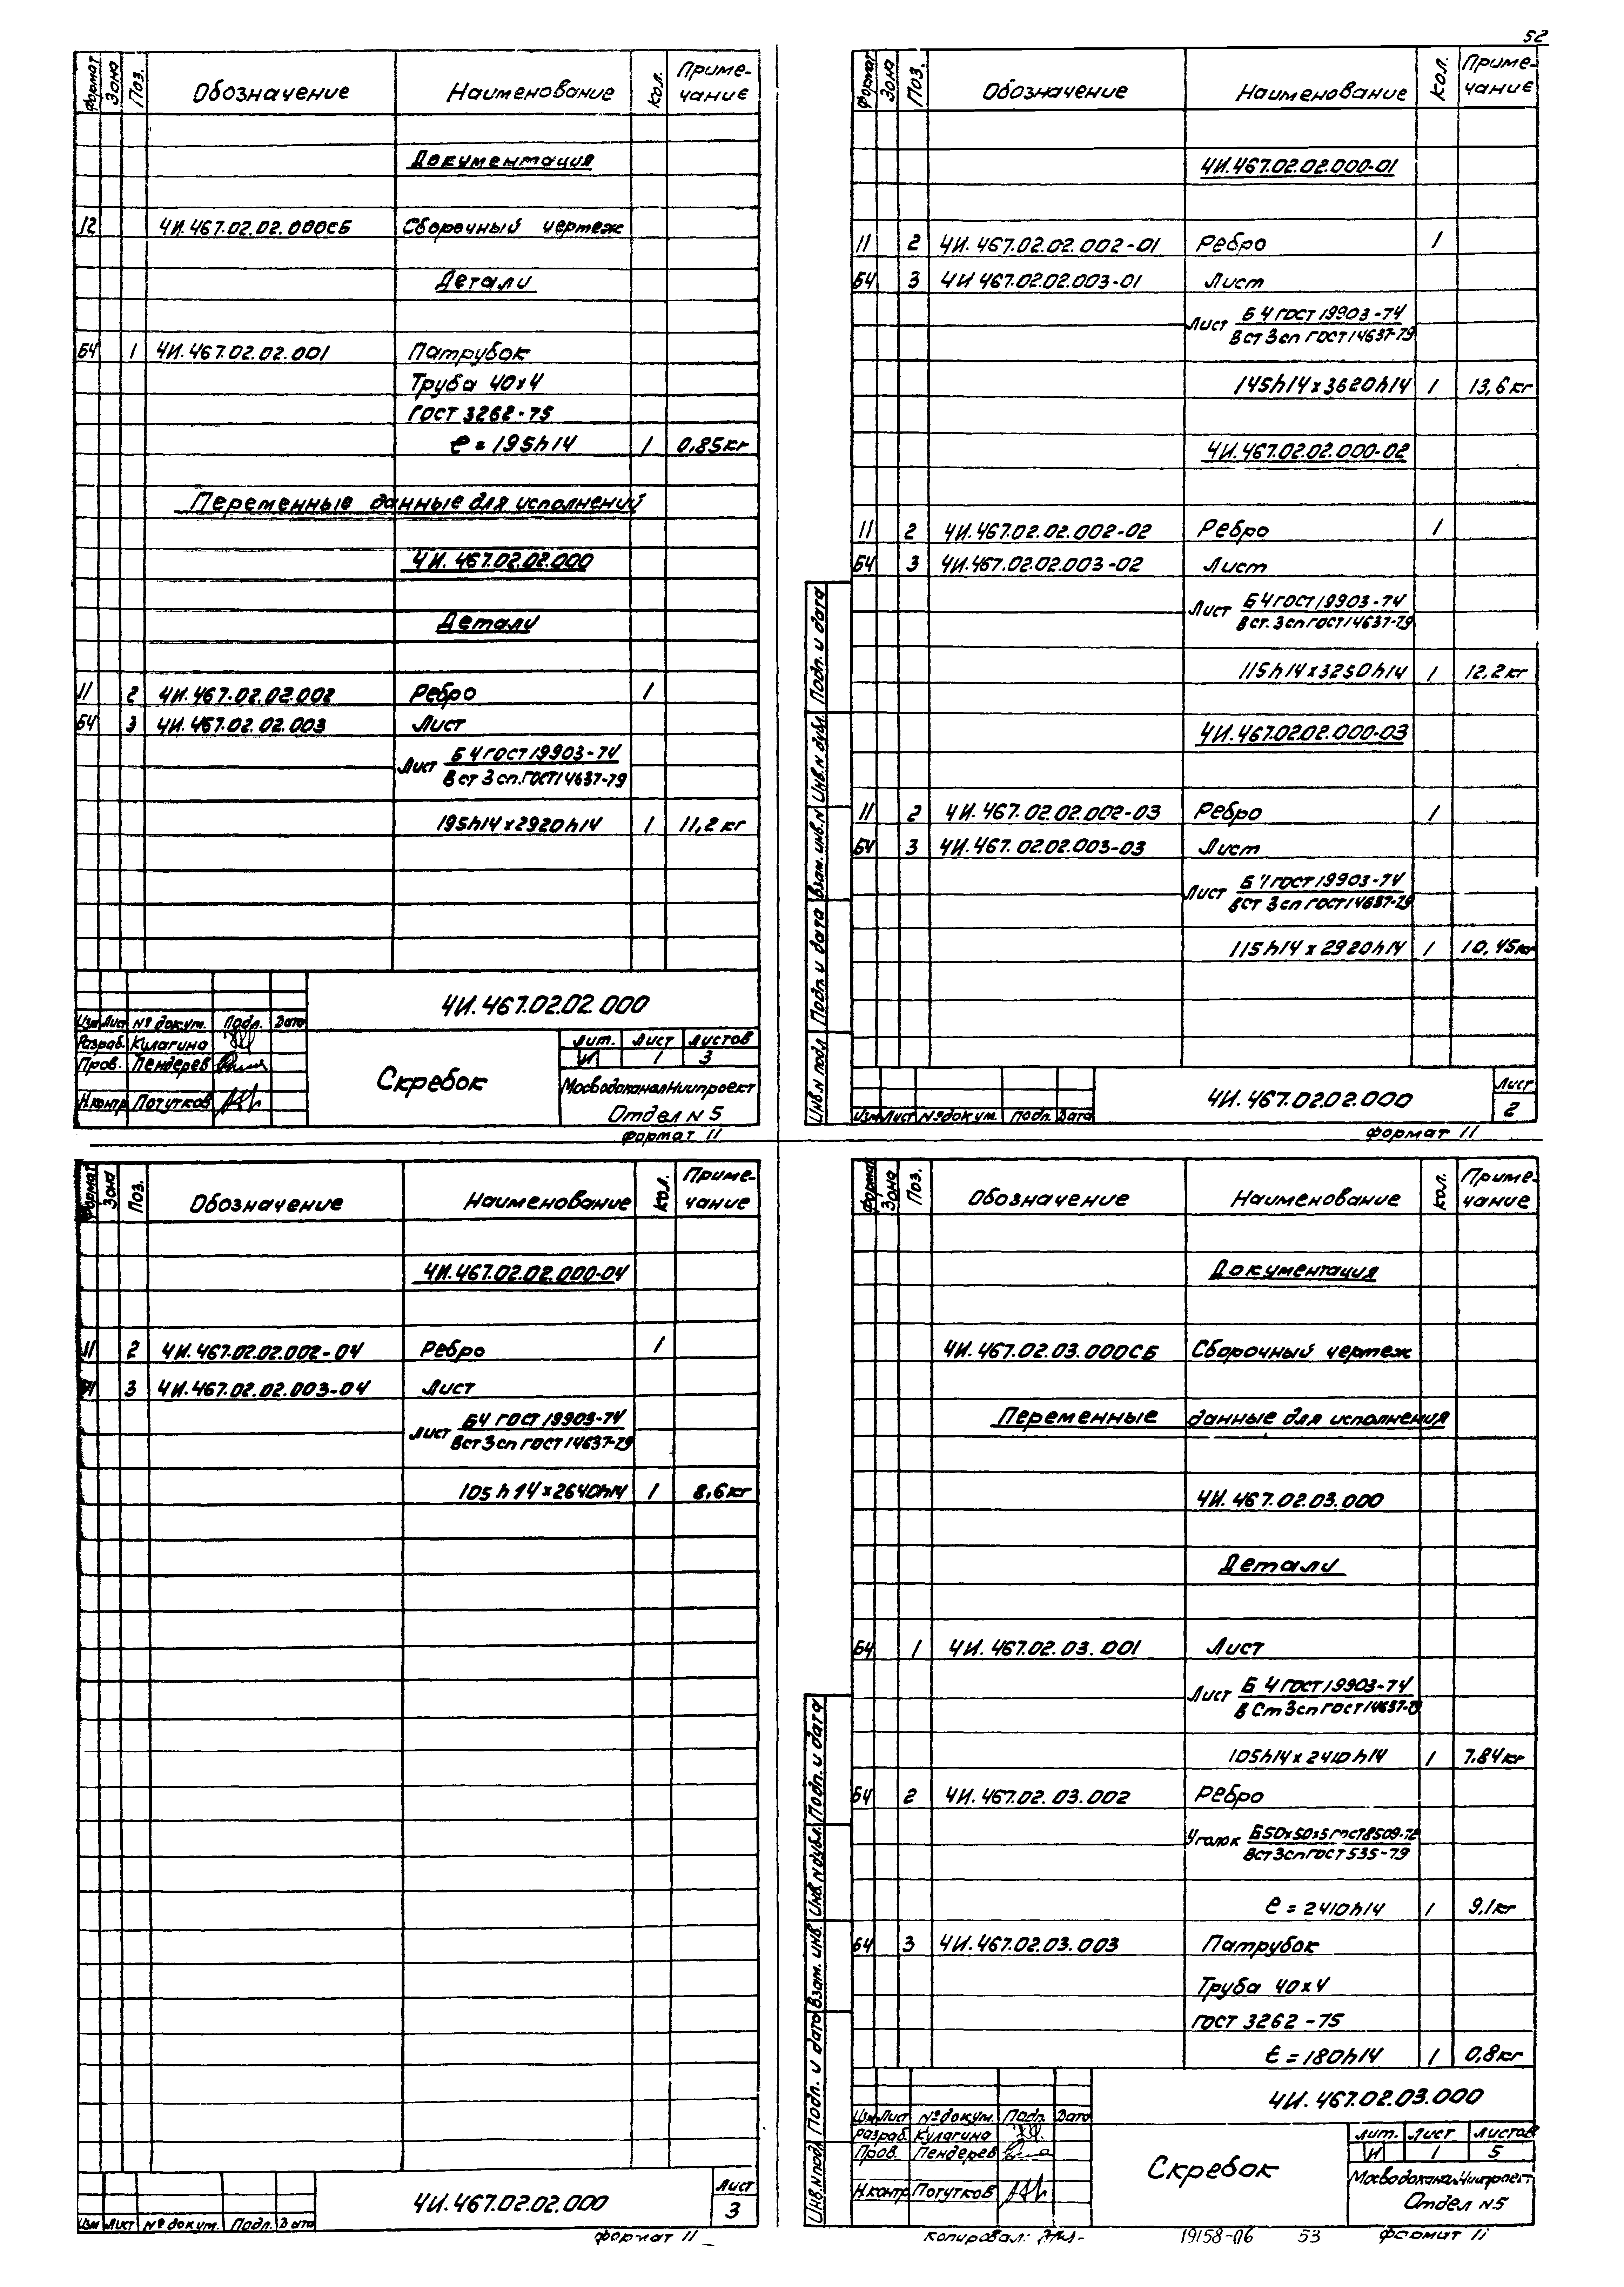 52
Формат Зона Поз. Обозначение Наименование Кол. Приме-
чание
Документация
12 ЧИ.467.02.02.000СБ Сборочный чертеж
Детали
БЧ 1 ЧИ.467.02.02.001 Патрубок
Труба 40х4
ГОСТ 3262-75
ℓ = 195h14 1 0,85кг
Переменные данные для исполнений
ЧИ.467.02.02.000
Детали
11 2 ЧИ.467.02.02.002 Ребро 1
БЧ 3 ЧИ.467.02.02.003 Лист
Б 4 ГОСТ 19903-74
Лист
Вст 3сп.ГОСТ14637-79
195h14х2920h14 1 11,2 кг
ЧИ.467.02.02.000
Изм Лист № докум. Подп. Дата
Разраб. Кулагина
Пров. Пендерев
Н.контр Потутков
Скребок
Лит. Лист Листов
И 1 3
МосводоканалНиипроект
Отдел N 5
формат 11
Формат Зона Поз. Обозначение Наименование Кол. Приме-
чание
ЧИ.467.02.02.000-01
11 2 ЧИ.467.02.02.002-01 Ребро 1
БЧ 3 ЧИ 467.02.02.003-01 Лист
Б 4 ГОСТ 19903-74
Лист
Вст 3сп ГОСТ14637-79
145h14х3620h14 1 13,6 кг
ЧИ.467.02.02.000-02
11 2 ЧИ.467.02.02.002-02 Ребро 1
БЧ 3 ЧИ.467.02.02.003-02 Лист
Б 4 ГОСТ 19903-74
Лист
Вст.3сп ГОСТ14637-79
115h14х3250h14 1 12,2 кг
ЧИ.467.02.02.000-03
11 2 ЧИ.467.02.02.002-03 Ребро 1
БЧ 3 ЧИ.467.02.02.003-03 Лист
Б 4 ГОСТ 19903-74
Лист
Вст 3сп ГОСТ14637-79
115h14 х 2920h14 1 10,45кг
Инв.N подл Подп и дата Взам. инв.N Инв.N дубл. Подп. и дата
Изм Лист № докум. Подп. Дата
ЧИ.467.02.02.000
Лист
2
формат 11
Формат Зона Поз. Обозначение Наименование Кол. Приме-
чание
ЧИ.467.02.02.000-04
11 2 ЧИ.467.02.02.002-04 Ребро 1
БЧ 3 ЧИ.467.02.02.003-04 Лист
Б4 ГОСТ 19903-74
Лист
Вст3сп ГОСТ14637-79
105 h14х2640h14 1 8,6кг
Изм Лист № докум. Подп. Дата
ЧИ.467.02.02.000
Лист
3
формат 11
Формат Зона Поз. Обозначение Наименование Кол. Приме-
чание
Документация
ЧИ.467.02.03.000СБ Сборочный чертеж
Переменные данные для исполнения
ЧИ.467.02.03.000
Детали
БЧ 1 ЧИ.467.02.03.001 Лист
Б 4 ГОСТ 19903-74
Лист
ВСт 3сп ГОСТ14637-79
105h14х2410h14 1 7,84кг
БЧ 2 ЧИ.467.02.03.002 Ребро
Б50х50х5 ГОСТ8509-72
Уголок
Вст3спГОСТ535-79
ℓ = 2410h14 1 9,1кг
БЧ 3 ЧИ.467.02.03.003 Патрубок
Труба 40х4
ГОСТ 3262-75
ℓ = 180h14 1 0,8кг
Инв.N подл Подп. и дата Взам. инв. Инв.N дубл. Подп. и дата
ЧИ.467.02.03.000
Изм Лист № докум. Подп. Дата
Разраб. Кулагина
Пров. Пендерев
Н.контр Потутков
Скребок
Лит. Лист Листов
И 1 5
МосводоканалНиипроект
Отдел N5
копировал: 19158-06 53 формат 11